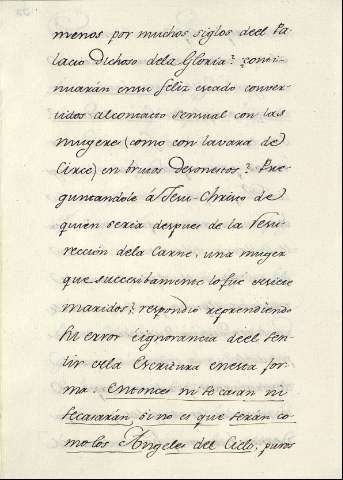 menos por muchos siglos deel Pa-
lacio Dichoso dela Gloria? conti-
nuarán en su feliz estado conver-
tidos alcontacto sensual con las
mugeres (como con lavara de
Circe) en brutos desonestos? Pre-
guntandole á Jesu-Christo de
quien seria despues de la Resu-
rrección dela Carne, una muger
que succesibamente lo fue desiete
maridos? respondio reprendiendo
su error è ignorancia deel sen-
tir dela Escritura enesta for-
ma. Entonces ni se casan ni
secasarán, si no es que serán co-
molos Angeles del Cielo, puros